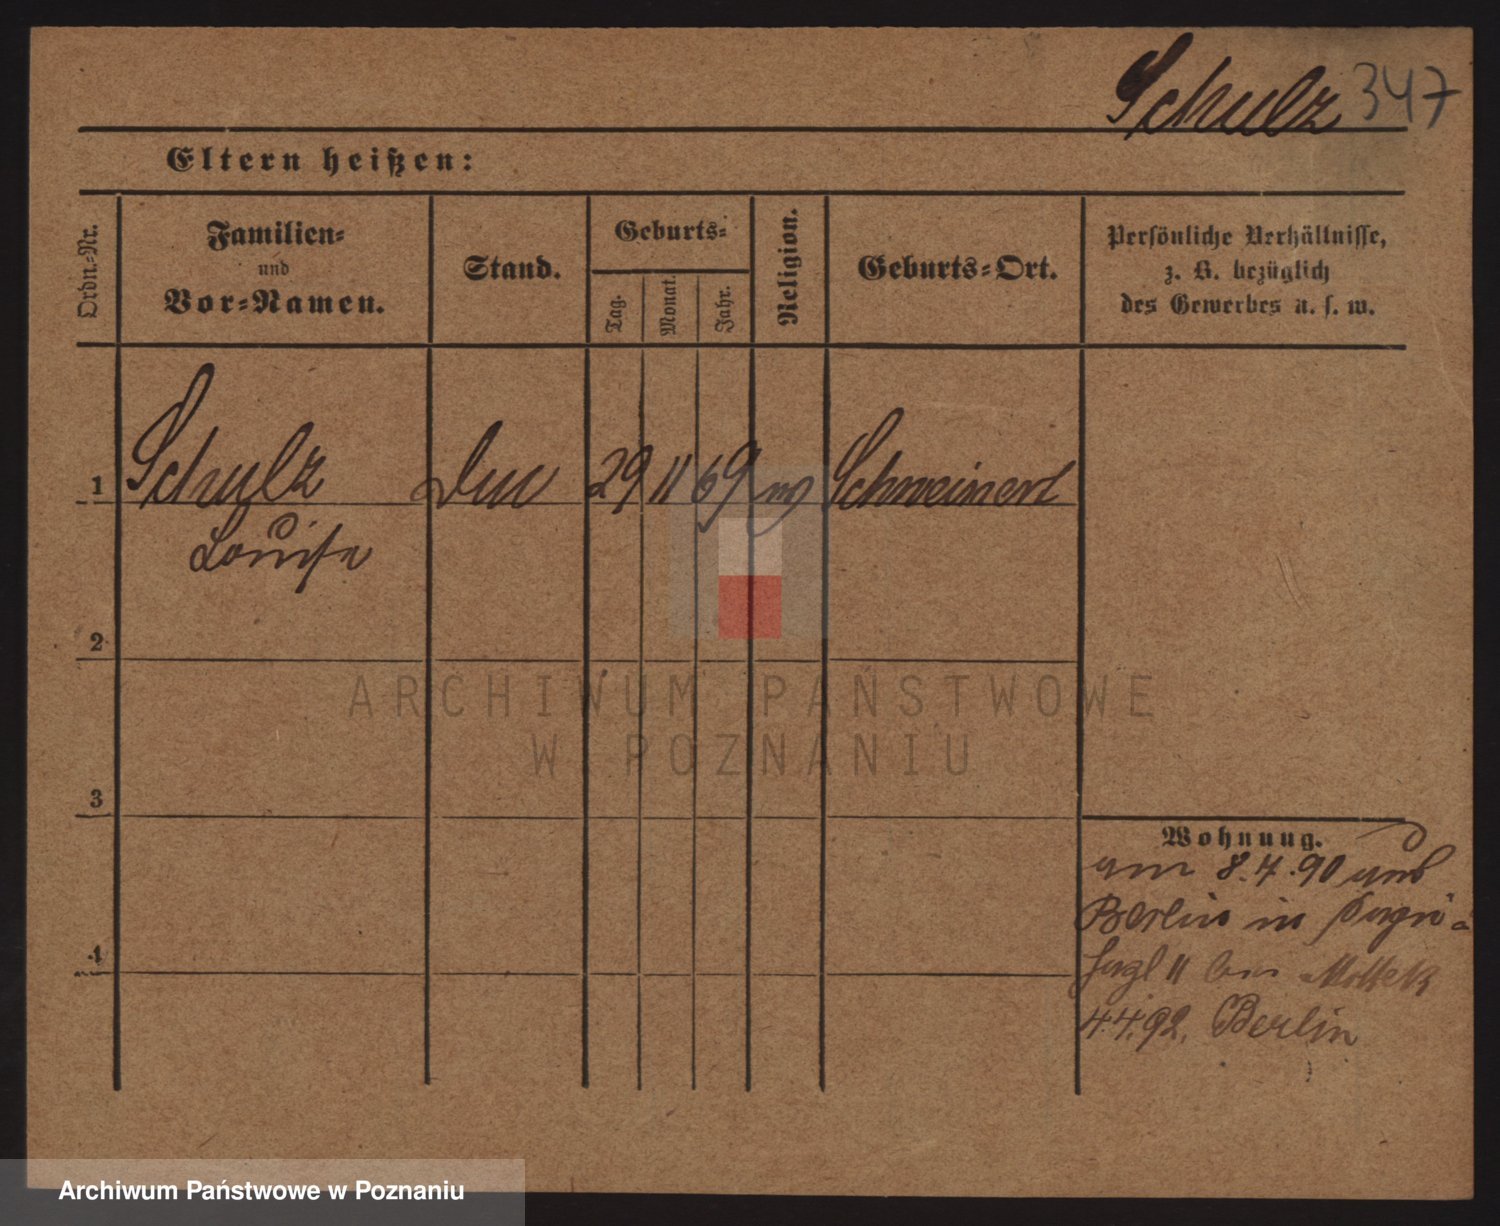 Schulz 347
Eltern heißen:
Ordn.-Nr.
Familien-
und
Vor-Namen.
Stand.
Geburts-
Tag.
Monat.
Jahr.
Religion.
Geburts-Ort.
Persönliche Verhältnisse,
z. B. bezüglich
des Gewerbes u. s. w.
1 Schulz 29 11 69 Schweinert
Louise
2
3
4
Wohnung.
8.4.90
Berlin in
11
4.4.92. Berlin
ARCHIWUM PAŃSTWOWE
W POZNANIU
Archiwum Państwowe w Poznaniu